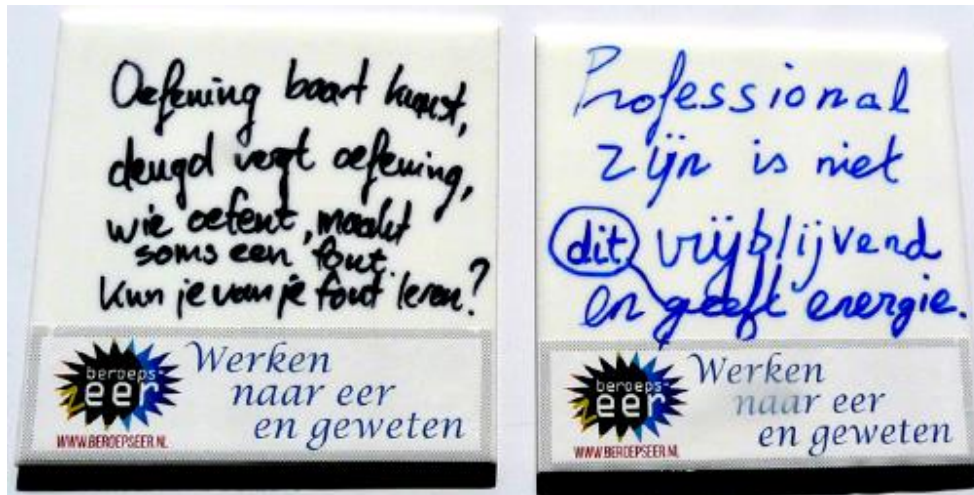 Oefening baart kunst,
deugd vergt oefening,
wie oefent, maakt
soms een fout.
Kun je van je fout leren?
beroeps-
zeer
WWW.BEROEPSEER.NL
Werken
naar eer
en geweten
Professional
zijn is niet
vrijblijvend
en dit geeft energie.
beroeps-
zeer
WWW.BEROEPSEER.NL
Werken
naar eer
en geweten